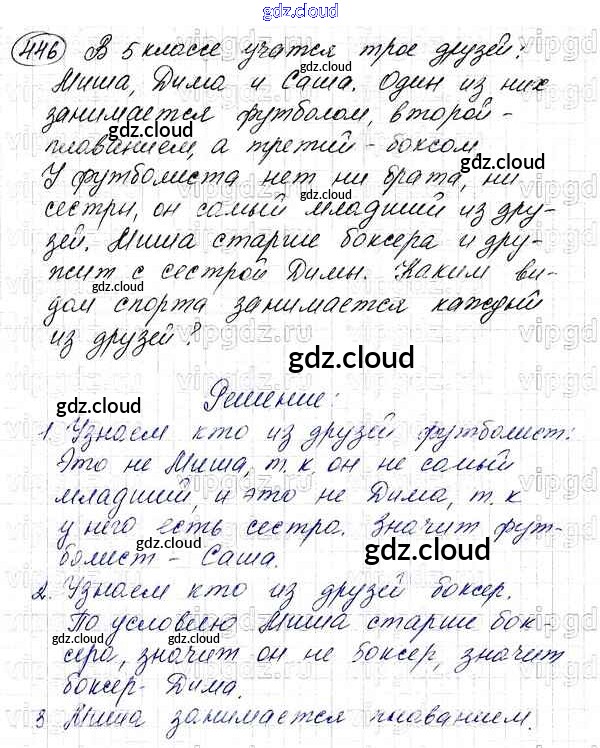 gdz.cloud
446 В 5 классе учатся трое друзей:
Миша, Дима и Саша. Один из них
занимается футболом, второй -
плаванием, а третий - боксом
У футболиста нет ни брата, ни
сестры, он самый младший из дру-
зей. Миша старше боксера и дру-
жит с сестрой Димы. Каким ви-
дом спорта занимается каждый
из друзей?
gdz.cloud
Решение:
1. Узнаем кто из друзей футболист:
Это не Миша, т.к. он не самый
младший, и это не Дима, т.к
у него есть сестра. Значит фут-
болист - Саша.
2. Узнаем кто из друзей боксер.
По условию Миша старше бок-
сера, значит он не боксер, значит
боксер- Дима.
3 Миша занимается плаванием.